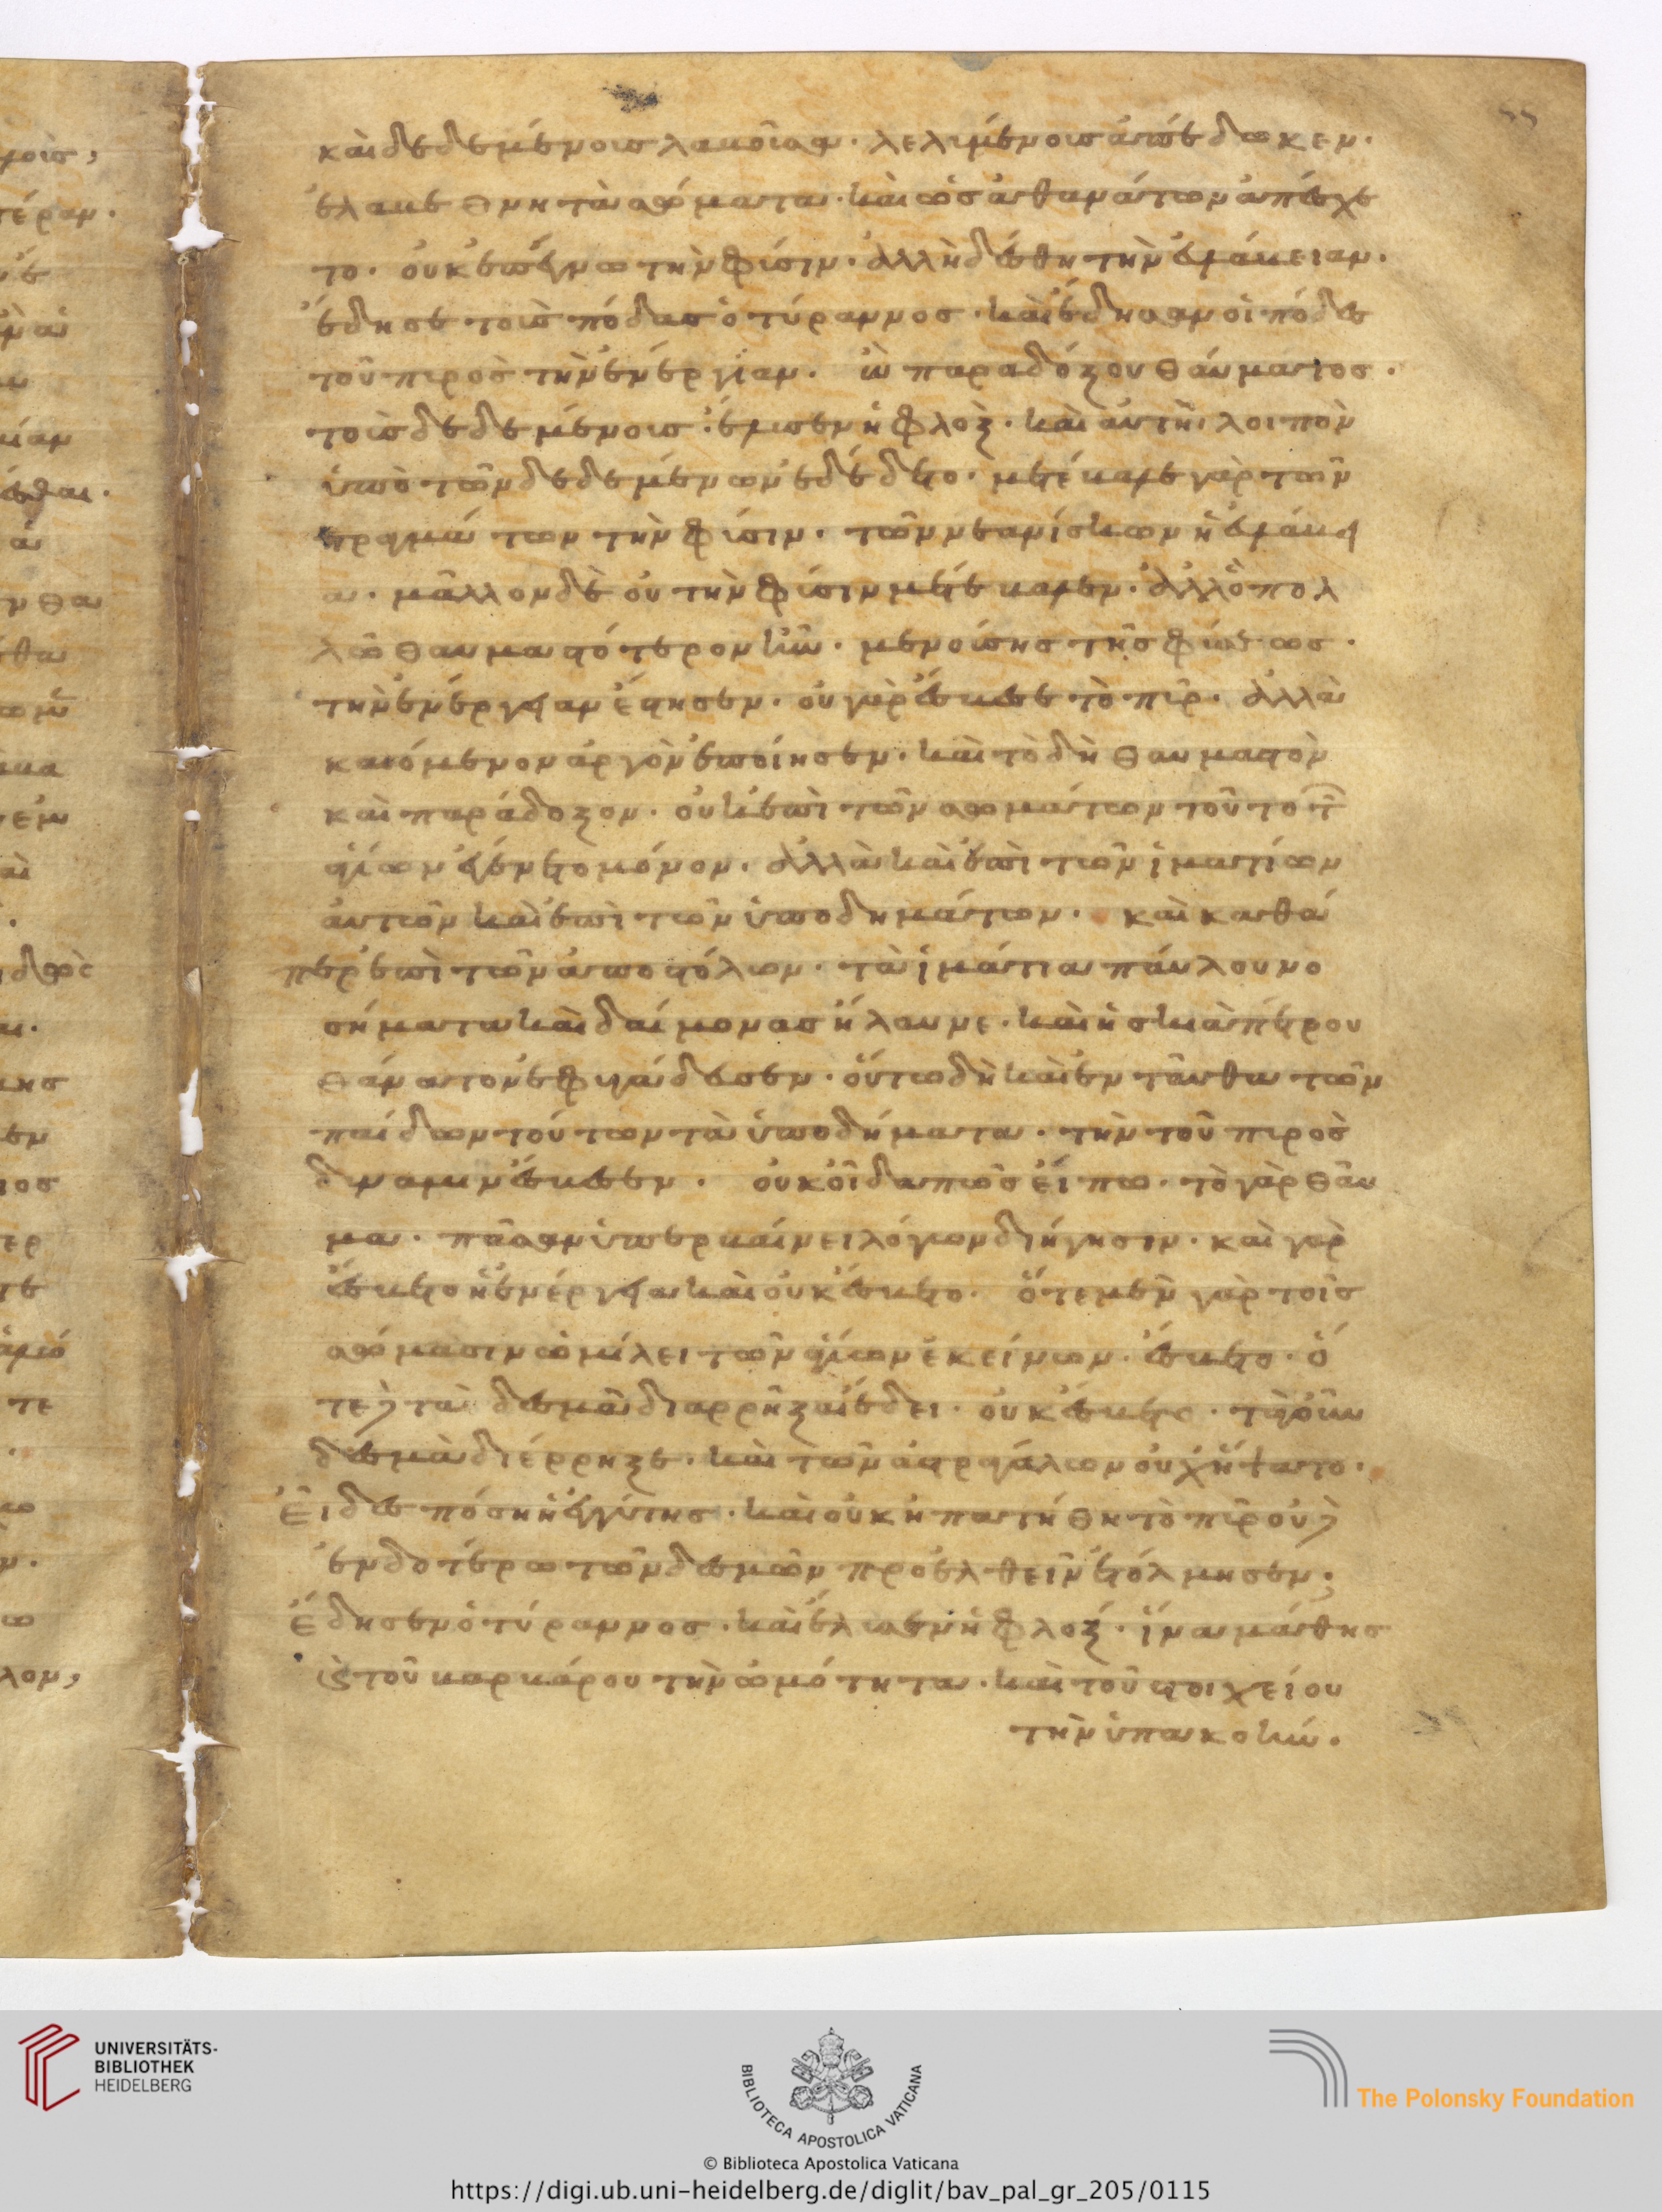 καὶ δεδεμένους λαβοῦσα. λελυμένους ἀπέδωκεν.
ἔλαβε θνητὰ σώματα. καὶ ὡς ἀθανάτων ἀπέσχε
το. οὐκ ἐπέγνω τὴν φύσιν. ἀλλ' ἠδέσθη τὴν εὐσέβειαν.
ἔδησε τοὺς πόδας ὁ τύραννος. καὶ ἔδησαν οἱ πόδες
τοῦ πυρὸς τὴν ἐνέργειαν. ὢ παραδόξου θαύματος.
τοὺς δεδεμένους ἔλυσεν ἡ φλὸξ. καὶ αὐτὴ λοιπὸν
ὑπὸ τῶν δεδεμένων ἐδέδετο. μετέβαλε γὰρ τῶν
πραγμάτων τὴν φύσιν. τῶν νεανίσκων ἡ εὐσέβει
α. μᾶλλον δὲ οὐ τὴν φύσιν μετέβαλεν. ἀλλ' ὃ πολ
λῶ θαυμαστότερον ἦν. μενούσης τῆς φύσεως.
τὴν ἐνέργειαν ἔστησεν. οὐ γὰρ ἔσβεσε τὸ πῦρ. ἀλλὰ
καιόμενον ἀργὸν ἐποίησεν. καὶ τὸ δὴ θαυμαστὸν
καὶ παράδοξον. οὐκ ἐπὶ τῶν σωμάτων τοῦτο τῶν
ἁγίων ἐγένετο μόνον. ἀλλὰ καὶ ἐπὶ τῶν ἱματίων
αὐτῶν καὶ ἐπὶ τῶν ὑποδημάτων. καὶ καθά
περ ἐπὶ τῶν ἀποστόλων. τὰ ἱμάτια παύλου νο
σήματα καὶ δαίμονας ἤλαυνε. καὶ ἡ σκιὰ πέτρου
θάνατον ἐφυγάδευσεν. οὕτω δὴ καὶ ἐνταῦθα τῶν
παίδων τούτων τὰ ὑποδήματα. τὴν τοῦ πυρὸς
δύναμιν ἔσβεσεν. οὐκ οἶδα πῶς εἴπω. τὸ γὰρ θαῦ
μα. πᾶσαν ὑπερβαίνει λόγων διήγησιν. καὶ γὰρ
ἔσβετο ἡ ἐνέργεια καὶ οὐκ ἔσβετο. ὅτε μὲν γὰρ τοῖς
σώμασιν ὡμίλει τῶν ἁγίων ἐκείνων. ἔσβετο. ὅ
τε δὲ τὰ δεσμὰ διαρρῆξαι ἔδει. οὐκ ἔσβετο. τὰ γοῦν
δεσμὰ διέρρηξε. καὶ τῶν ἀστραγάλων οὐχ ἥψατο.
Εἶδες πόση ἡ ἐγγύτης. καὶ οὐκ ἠπατήθη τὸ πῦρ οὐδὲ
ἐνδοτέρω τῶν δεσμῶν προελθεῖν ἐτόλμησεν;
Ἔδησεν ὁ τύραννος. καὶ ἔλυσεν ἡ φλόξ. ἵνα μάθης
καὶ τοῦ βαρβάρου τὴν ὠμότητα. καὶ τοῦ στοιχείου
τὴν ὑπακοήν.
UNIVERSITÄTS-
BIBLIOTHEK
HEIDELBERG
BIBLIOTECA APOSTOLICA VATICANA
The Polonsky Foundation
© Biblioteca Apostolica Vaticana
https://digi.ub.uni-heidelberg.de/diglit/bav_pal_gr_205/0115